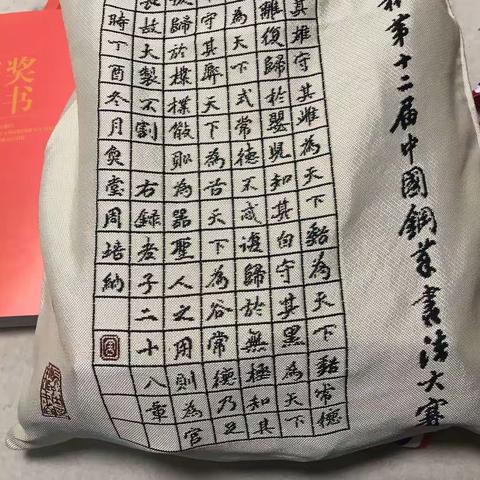 杯第十二届中國鋼筆書法大賽
其雄守其雌為天下谿為天下谿常德
離復歸於嬰兒知其白守其黑為天下
為天下式常德不忒復歸於無極知其
守其辱天下為谷天下為谷常德乃足
復歸於樸樸散則為器聖人之用則為官
長故大製不割 右録老子二十八章
時丁酉冬月堂周培納
奖
书